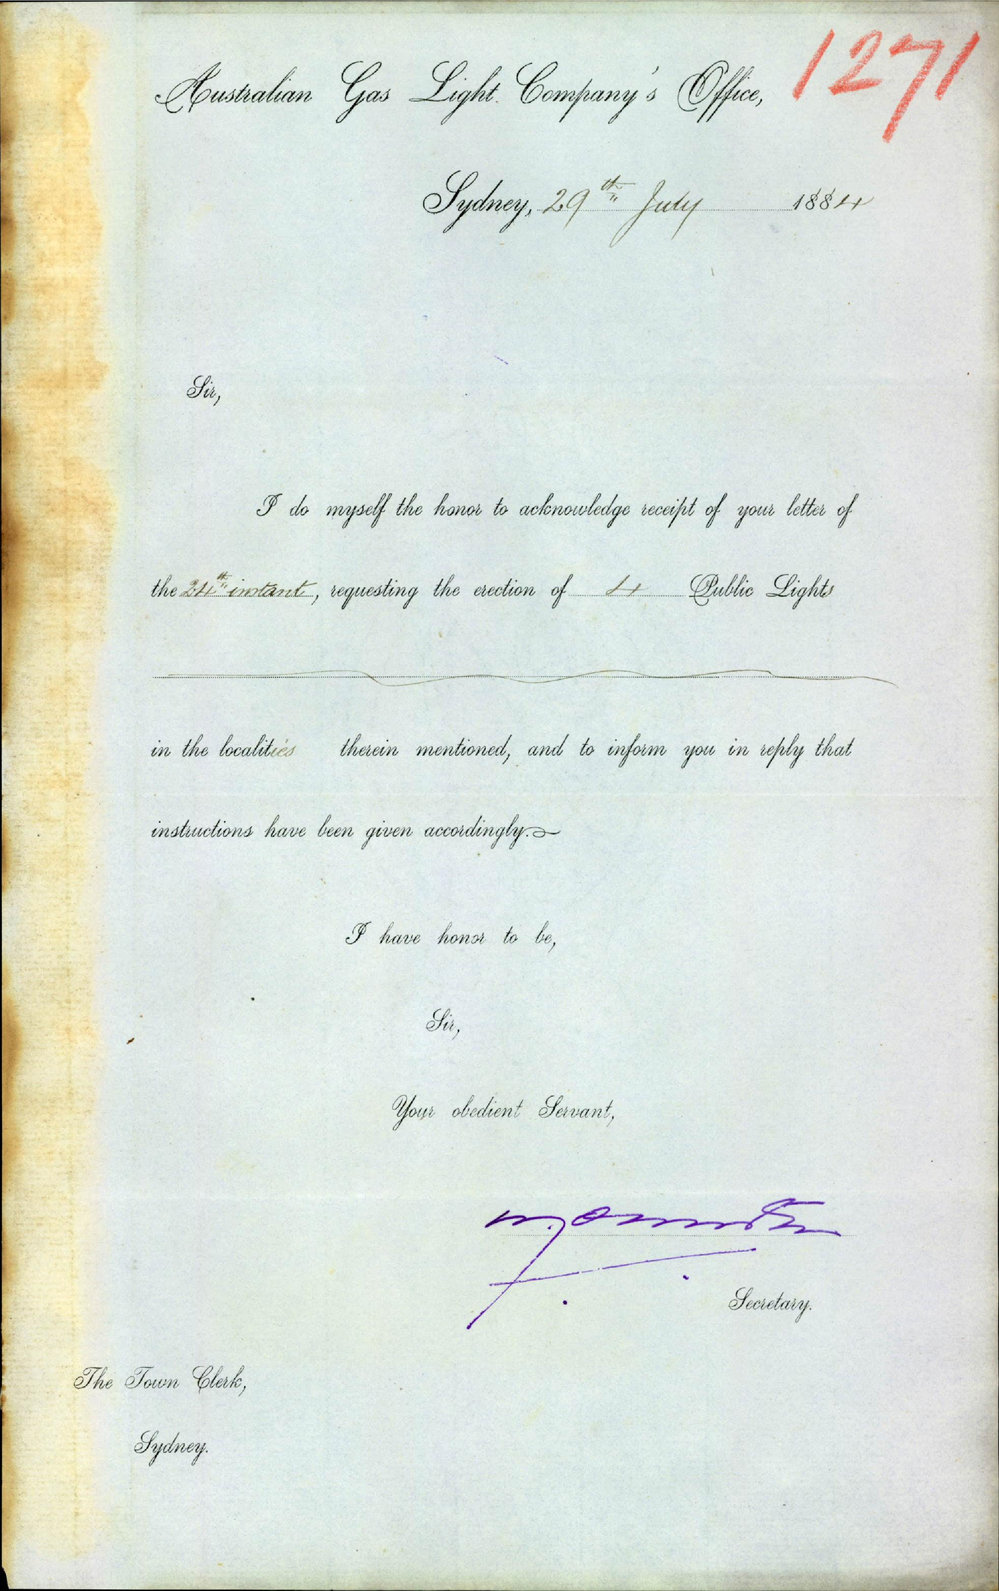 1271
Australian Gas Light Company's Office,
Sydney, 29th July 1884
Sir,
I do myself the honor to acknowledge receipt of your letter of
the 24th instant, requesting the erection of 4 Public Lights
in the localities therein mentioned, and to inform you in reply that
instructions have been given accordingly.
I have honor to be,
Sir,
Your obedient Servant,
Secretary.
The Town Clerk,
Sydney.